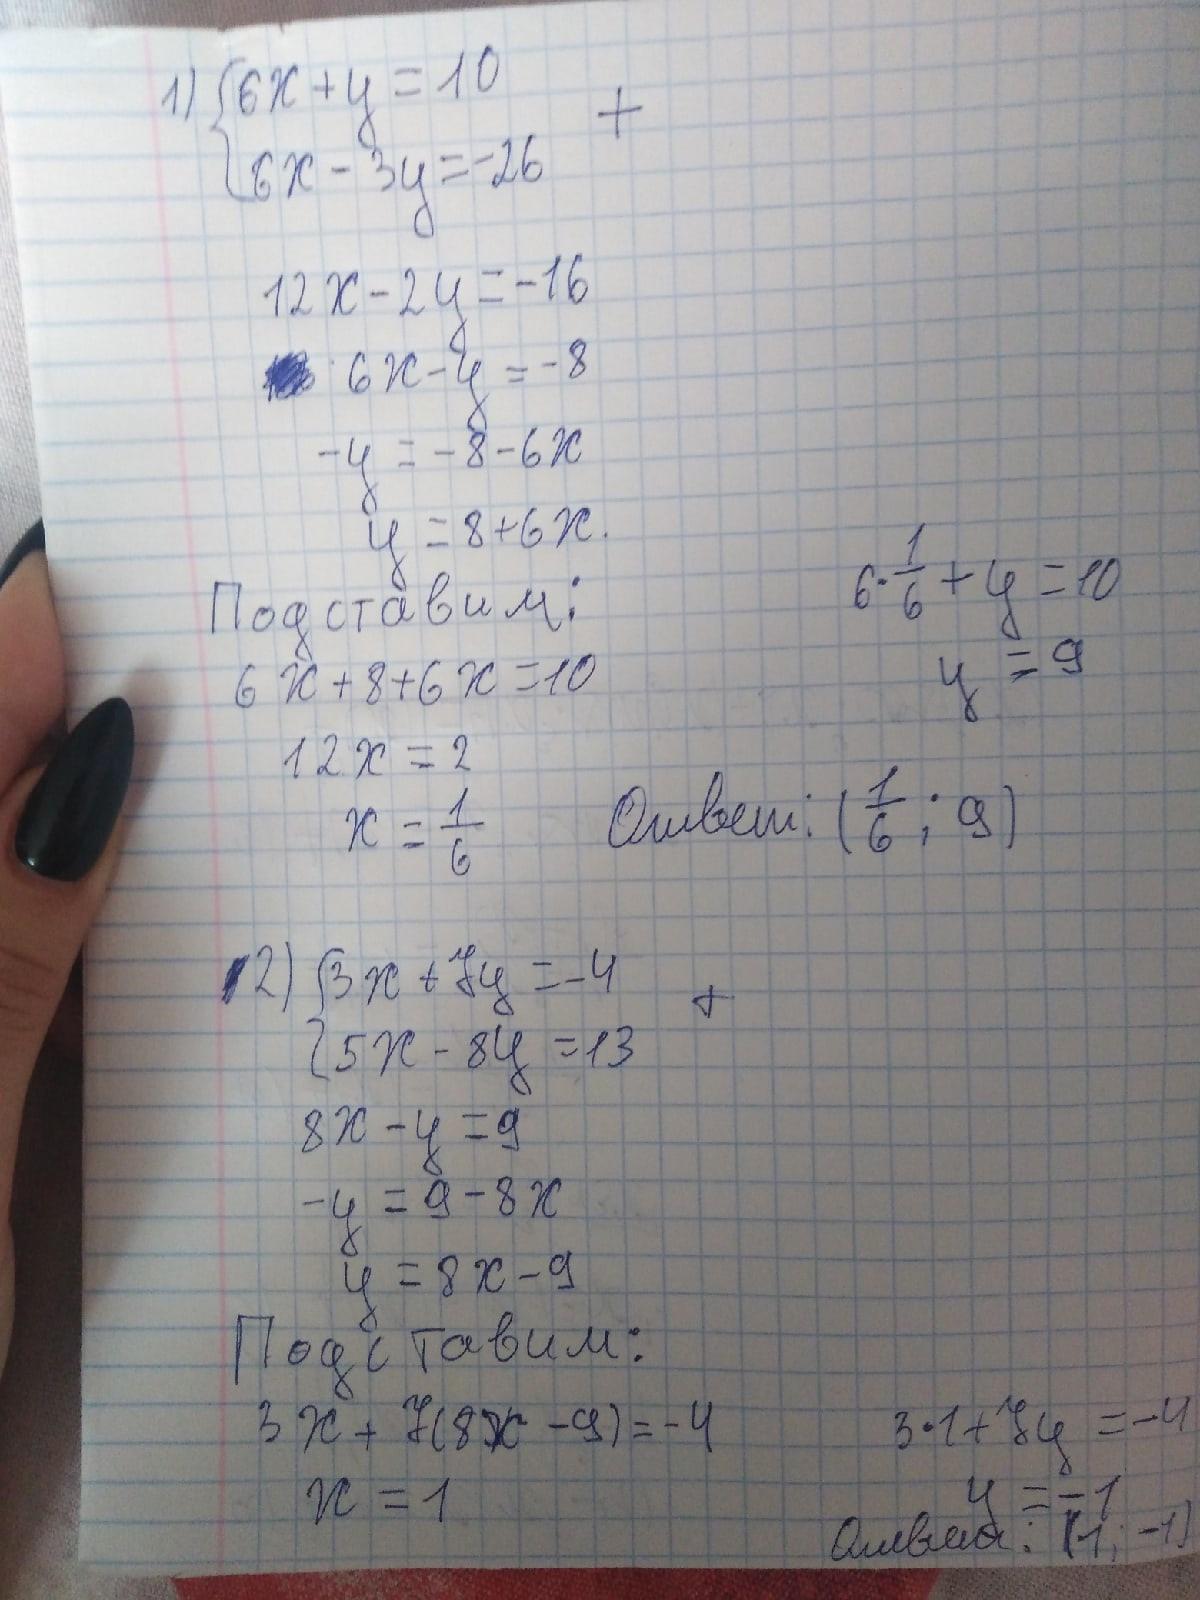 1) {6x + y = 10
{6x - 3y = -26 +
12x - 2y = -16
6x - y = -8
-y = -8 - 6x
y = 8 + 6x.
Подставим:
6x + 8 + 6x = 10
12x = 2
x = 1/6
6·1/6 + y = 10
y = 9
Ответ: (1/6; 9)
2) {3x + 7y = -4
{5x - 8y = 13 +
8x - y = 9
-y = 9 - 8x
y = 8x - 9
Подставим:
3x + 7(8x - 9) = -4
x = 1
3·1 + 7y = -4
y = -1
Ответ: (1; -1)